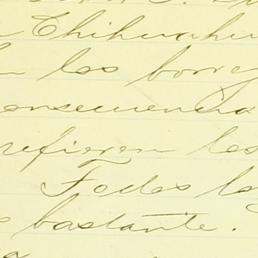 Chihuahu
los borre
onsecuencia
refieren les
Todos lo
bastante.